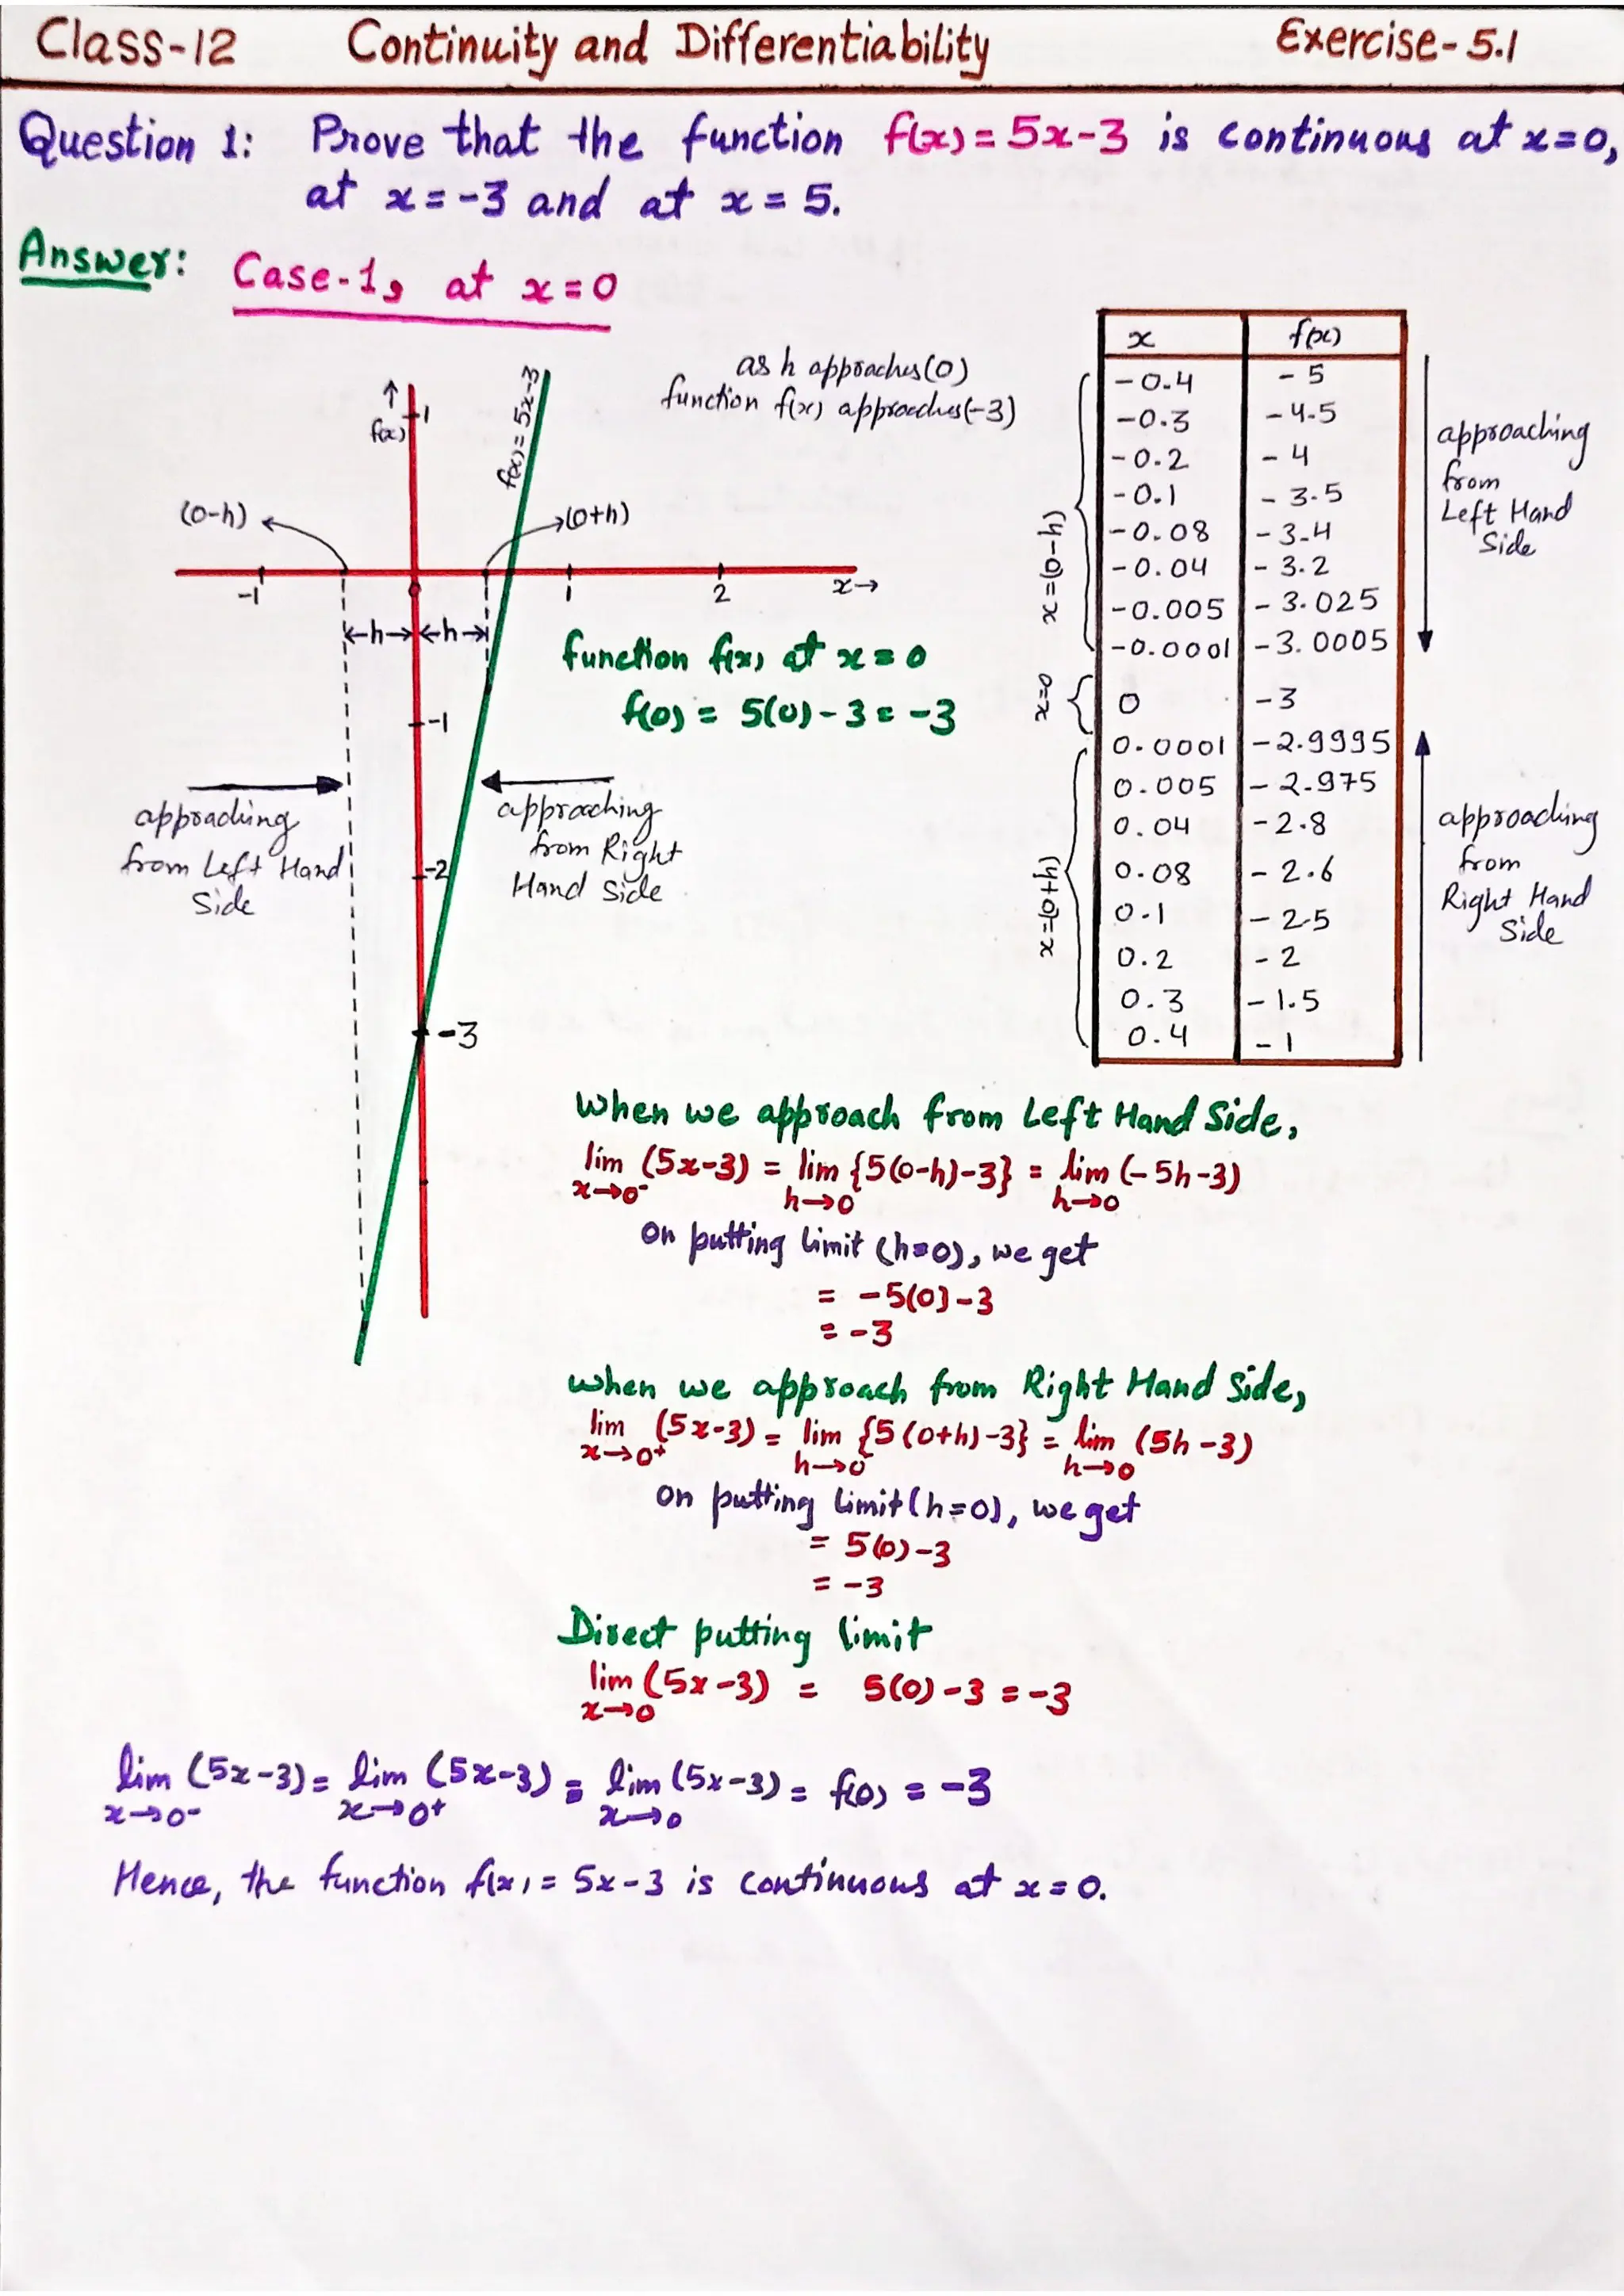 Class-12 Continuity and Differentiability Exercise-5.1
Question 1: Prove that the function f(x)=5x-3 is continuous at x=0,
at x=-3 and at x=5.
Answer: Case-1, at x=0
as h approaches(0)
function f(x) approaches(-3)
↑
f(x)
1
f(x)=5x-3
(0-h)
(0+h)
-1
0
1
2
x→
←h→
←h→
function f(x) at x=0
f(0) = 5(0)-3 = -3
-1
approaching
from Left Hand
Side
approaching
from Right
Hand Side
-2
-3
x f(x)
-0.4 -5
-0.3 -4.5
-0.2 -4
-0.1 -3.5
-0.08 -3.4
-0.04 -3.2
-0.005 -3.025
-0.0001 -3.0005
0 -3
0.0001 -2.9995
0.005 -2.975
0.04 -2.8
0.08 -2.6
0.1 -2.5
0.2 -2
0.3 -1.5
0.4 -1
x=(0-h)
x=0
x=(0+h)
approaching
from
Left Hand
Side
approaching
from
Right Hand
Side
When we approach from Left Hand Side,
lim (5x-3) = lim {5(0-h)-3} = lim (-5h-3)
x→0⁻ h→0 h→0
On putting limit (h=0), we get
= -5(0)-3
= -3
when we approach from Right Hand Side,
lim (5x-3) = lim {5(0+h)-3} = lim (5h-3)
x→0⁺ h→0 h→0
on putting limit (h=0), we get
= 5(0)-3
= -3
Direct putting limit
lim (5x-3) = 5(0)-3 = -3
x→0
lim (5x-3) = lim (5x-3) = lim (5x-3) = f(0) = -3
x→0⁻ x→0⁺ x→0
Hence, the function f(x) = 5x-3 is continuous at x=0.